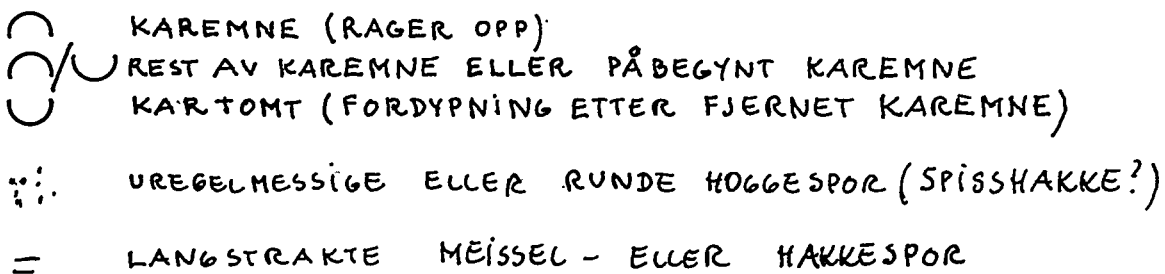 KAREMNE (RAGER OPP)
REST AV KAREMNE ELLER PÅBEGYNT KAREMNE
KARTOMT (FORDYPNING ETTER FJERNET KAREMNE)
UREGELMESSIGE ELLER RUNDE HOGGESPOR (SPISSHAKKE?)
LANGSTRAKTE MEISSEL- ELLER HAKKESPOR